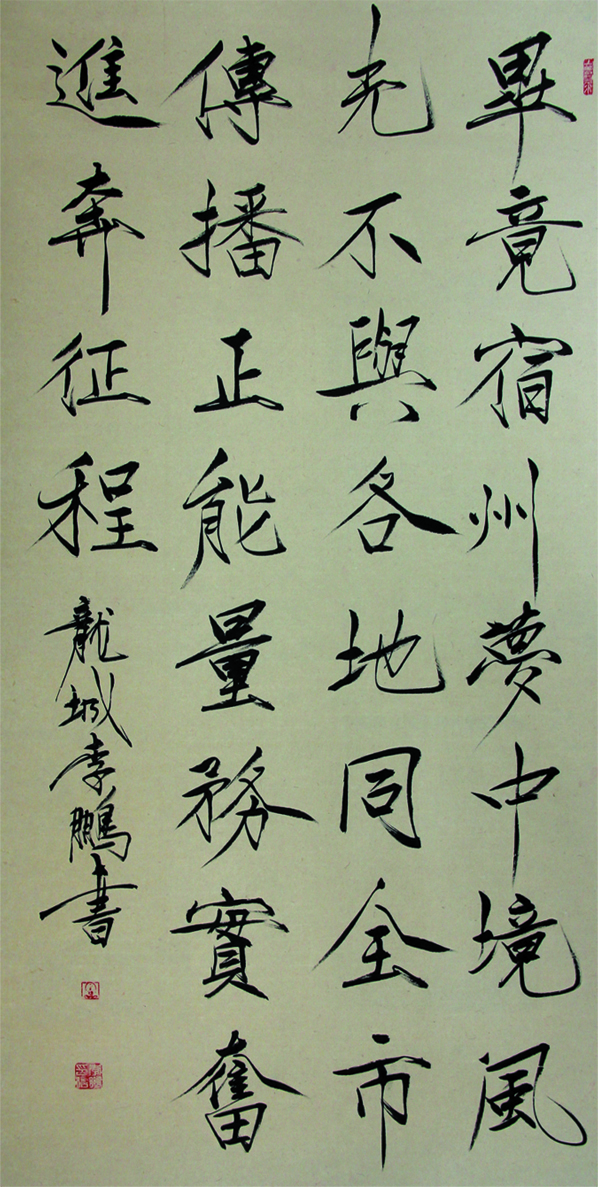 畢竟宿州夢中境風
光不與各地同全市
傳播正能量務實奮
進奔征程
龍城李鵬書